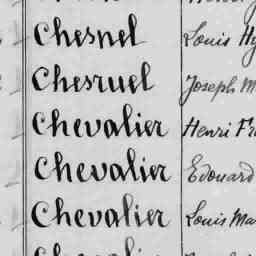 Chesnel Louis Hy
Chesruel Joseph M
Chevalier Henri Fr
Chevalier Edouard
Chevalier Louis Ma